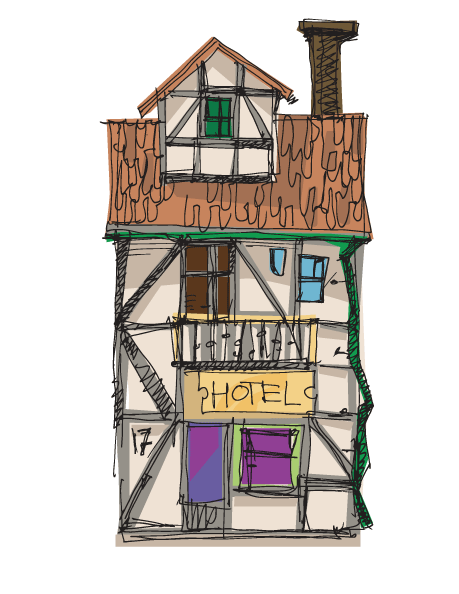 HOTEL
17